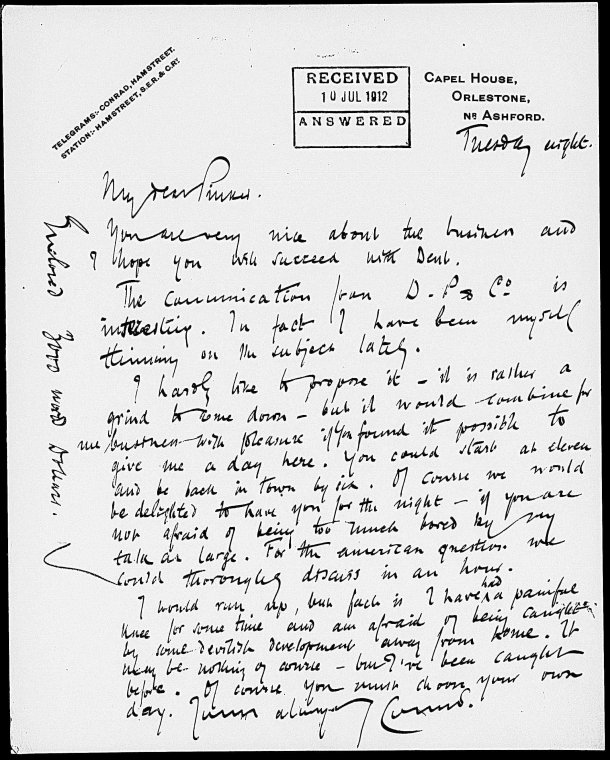 TELEGRAMS:- CONRAD, HAMSTREET.
STATION:- HAMSTREET, S.E.R. & C.RY.
RECEIVED
10 JUL 1912
ANSWERED
CAPEL HOUSE,
ORLESTONE,
NR ASHFORD.
Tuesday night.
My dear Pinker.
You are very nice about the business and
I hope you will succeed with Dent.
The communication from D. P & Co is
interesting. In fact I have been myself
thinking on the subject lately.
I hardly like to propose it – it is rather a
grind to come down – but it would combine for
me business with pleasure if you found it possible to
give me a day here. You could start at eleven
and be back in town by six. Of course we would
be delighted to have you for the night – if you are
not afraid of being too much bored by my
talk at large. For the american question we
could thoroughly discuss in an hour.
I would run up, but fact is I have had a painful
knee for some time and am afraid of being caught
by some devilish development away from home. It
may be nothing of course – but I've been caught
before. Of course you must choose your own
day. Yours always Conrad.
Enclosed 3000 words